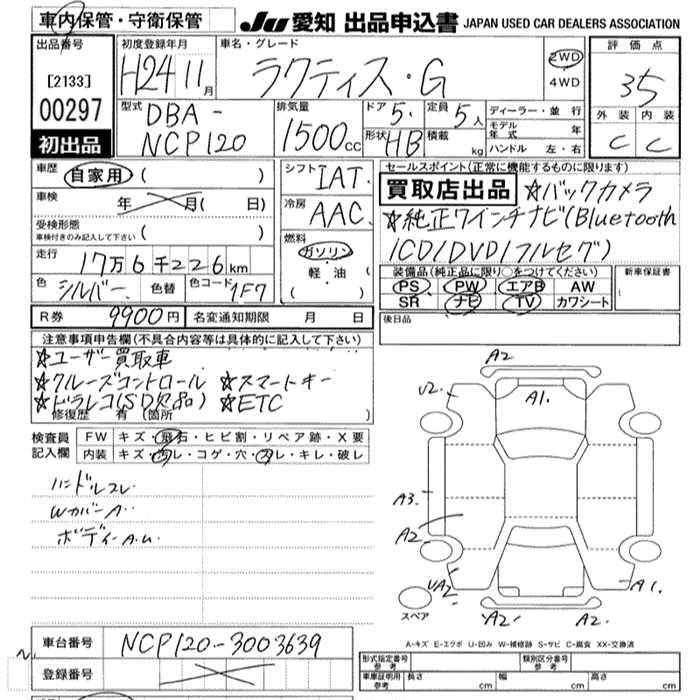 車内保管・守衛保管
JU 愛知 出品申込書 JAPAN USED CAR DEALERS ASSOCIATION
出品番号
[2133]
00297
初出品
初度登録年月 H24 11月
車名・グレード ラクティス・G
2WD
4WD
評価点
35
外装 内装
C C
型式 DBA-
NCP120
排気量 1500cc
ドア 5. 定員 5人
形状 HB 積載 kg
ディーラー・並行
モデル年式 年
ハンドル 左・右
車歴 自家用 ( )
車検 年 月( 日)
受検形態
車検付きのみ記入して下さい ( )
走行 17万6千226km
色 シルバー 色替 色コード 1F7
シフト IAT.
冷房 AAC.
燃料
ガソリン
軽・油
( )
セールスポイント(正常に機能するものに限ります)
買取店出品 ☆バックカメラ
☆純正7インチナビ(Bluetooth
/CD/DVD/フルセグ)
装備品(純正品に限り○をつけてください)
PS PW エアB AW
SR ナビ TV カワシート
新車保証書
R券 9900円 名変通知期限 月 日
後日品
注意事項申告欄(不具合内容等は具体的に記入して下さい)
☆ユーザー買取車
☆クルーズコントロール ☆スマートキー
☆ドラレコ(SD欠品) ☆ETC
修復歴 有 (箇所 )
検査員
記入欄
FW キズ・飛石・ヒビ割・リペア跡・X要
内装 キズ・汚レ・コゲ・穴・スレ・キレ・破レ
ハンドルスレ
WカバーA
ボディーA.U.
A2
U2. A1.
A3.
A2
UA2 A1.
A2 A2.
スペア
A-キズ E-エクボ U-凹み W-補修跡 S-サビ C-腐食 XX-交換済
車台番号 NCP120-3003639
登録番号
型式指定番号 参考
類別区分番号 参考
車庫証明用 参考 長さ cm 幅 cm 高さ cm